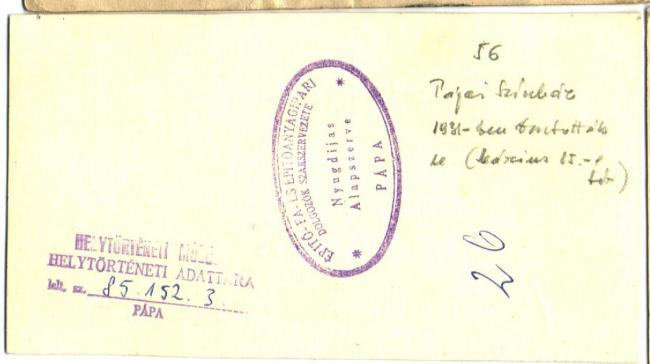 56
Pápai Színház
1931-ben
le
ÉPÍTŐ-FA-ÉS ÉPÍTŐANYAGIPARI
DOLGOZÓK SZAKSZERVEZETE
Nyugdijas
Alapszerve
PÁPA
26
HELYTÖRTÉNETI
HELYTÖRTÉNETI ADATTÁRA
lelt. sz. 85.152.3.
PÁPA